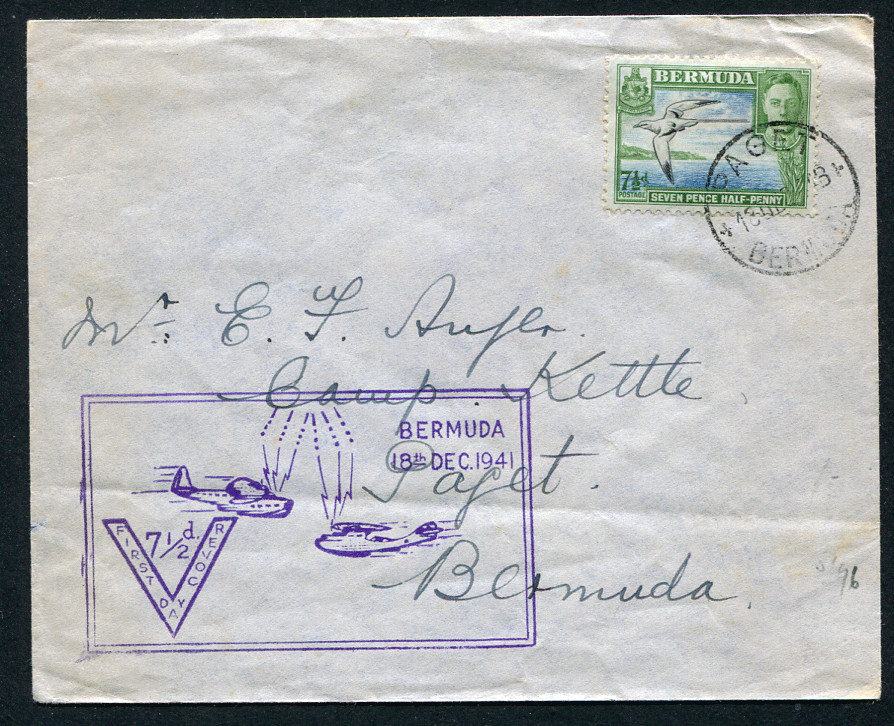 BERMUDA
7½d
POSTAGE
SEVEN PENCE HALF-PENNY
PAGET
BERMUDA
Mr. E. F.
Camp Kettle
Paget.
Bermuda.
BERMUDA
18th DEC. 1941
7½d.
FIRST DAY REVOC